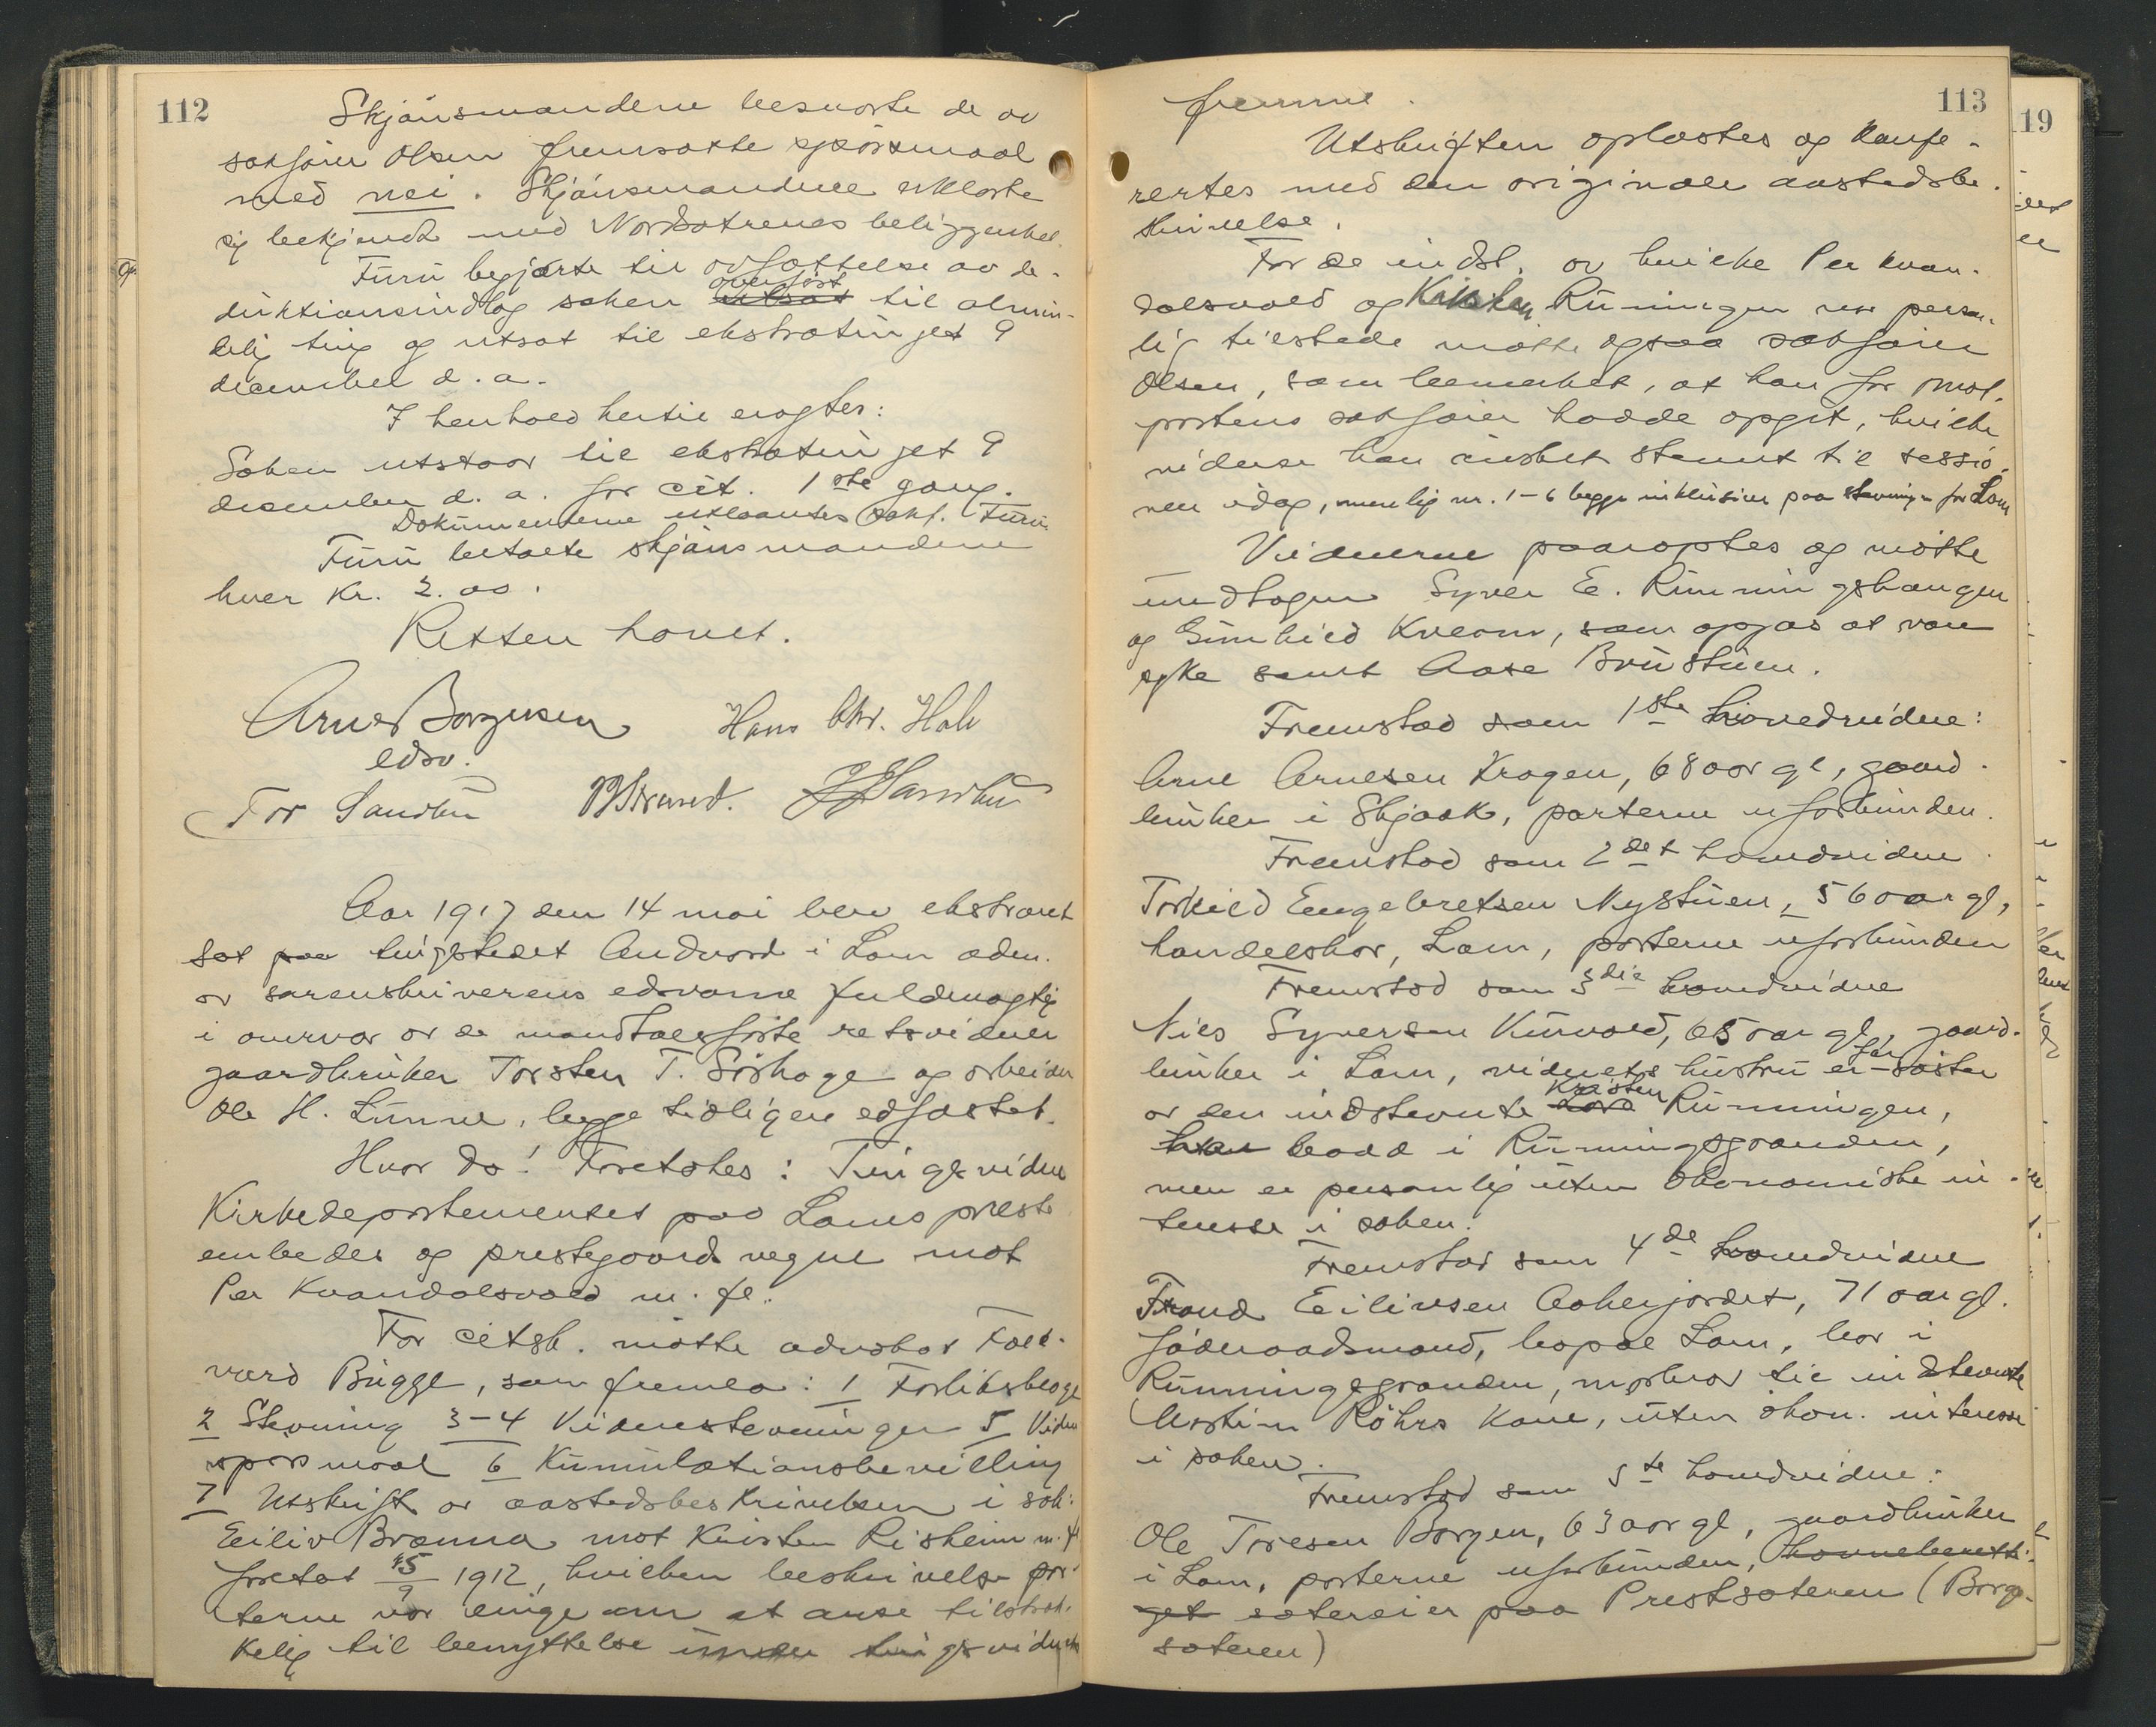 112
Skjönsmændene besvarte de av
sakfører Olsen fremsatte spörsmaal
med nei. Skjönsmændene erklærte
sig bekjendt med Nordsætrenes beliggenhet.
Furu begjærte til avfattelse av de-
duktionsindlæg saken utsat overfört til almin-
delig ting og utsat til ekstratinget 9
december d. a.
I henhold hertil eragtes:
Saken utstaar til ekstratinget 9
december d. a. for cit. 1ste gang.
Dokumenterne utlaantes sakf. Furu.
Furu betalte skjönsmændene
hver kr. 2.00.
Retten hævet.
Arne Borgersen Hans Chr. Hole
edsv.
Tor Sandbu
Aar 1917 den 14 mai blev ekstraret
sat paa tingstedet Andvord i Lom adm.
av sorenskriverens edsvorne fuldmægtig
i overvær av de mandtalsförte retsvidner
gaardbruker Torsten T. Sörhage og arbeider
Ole H. Lunne, begge tidligere edfæstet.
Hvor da! Foretokes: Tingsvidne
Kirkedepartementet paa Loms preste
embedes og prestegaards vegne mot
Per Kvandalsvold m. fl.
For citsk. mötte advokat Fold-
vard Bugge, som fremla: 1 Forliksklage
2 Stevning 3-4 Vidnestevninger 5 Vidne
spörsmaal 6 Kumulationsbevilling
7 Utskrift av aastedsbeskrivelsen i sak:
Eiliv Brænna mot Kristen Risheim m. fl
foretat 1912, hvilken beskrivelse par-
terne var enige om at anse tilstræk-
kelig til benyttelse under tingsvidnets
113
fremme.
Utskriften oplæstes og konfe-
rertes med den originale aastedsbe-
skrivelse.
For de indst. av hvilke Per Kvan-
dalsvold og Kristen Runingen var person-
lig tilstede mötte ogsaa sakförer
Olsen, som bemerket, at han for mot-
partens sakförer hadde opgit, hvilke
vidner han önsket stevnt til sessio-
nen idag, nemlig nr. 1-6 begge inklusive paa stevningen for Lom
Vidnerne paaroptes og mötte
undtagen Syver E. Runningshaugen
og Gunhild Kveom, som opgas at være
syke samt Aase Brustuen.
Fremstod som 1ste hovedvidne:
Arne Arnesen Kragen, 68 aar gl, gaard-
bruker i Skjaak, parterne uforbunden.
Fremstod som 2det hovedvidne
Torkild Engebretsen Nystuen, 56 aar gl,
handelskar, Lom, parterne uforbunden
Fremstod som 3die hovedvidne
Nils Syversen Kurvold, 65 aar gl, gaard-
bruker i Lom, vidnets hustru er far söster
av den indstevnte Kristen Runningen,
har bodd i Runningsgranden,
men er personlig uten ökonomiske in-
teresse i saken.
Fremstod som 4de hovedvidne
Trond Eilivsen Aakerjordet, 71 aar gl.
föderaadsmand, bopæl Lom, bor i
Runningsgranden, morbror til indstevnte
Martin Röhrs kone, uten ökon. interesse
i saken.
Fremstod som 5te hovedvidne:
Ole Toresen Borgen, 63 aar gl, gaardbruker
i Lom, parterne uforbunden, havneberetti-
get sætereier paa Prestsæteren (Borge-
sæteren)
119